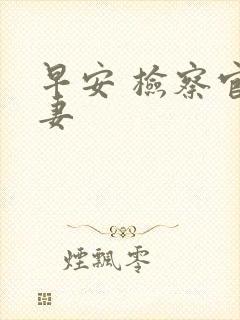 早安 檢察官
妻
煙飄零